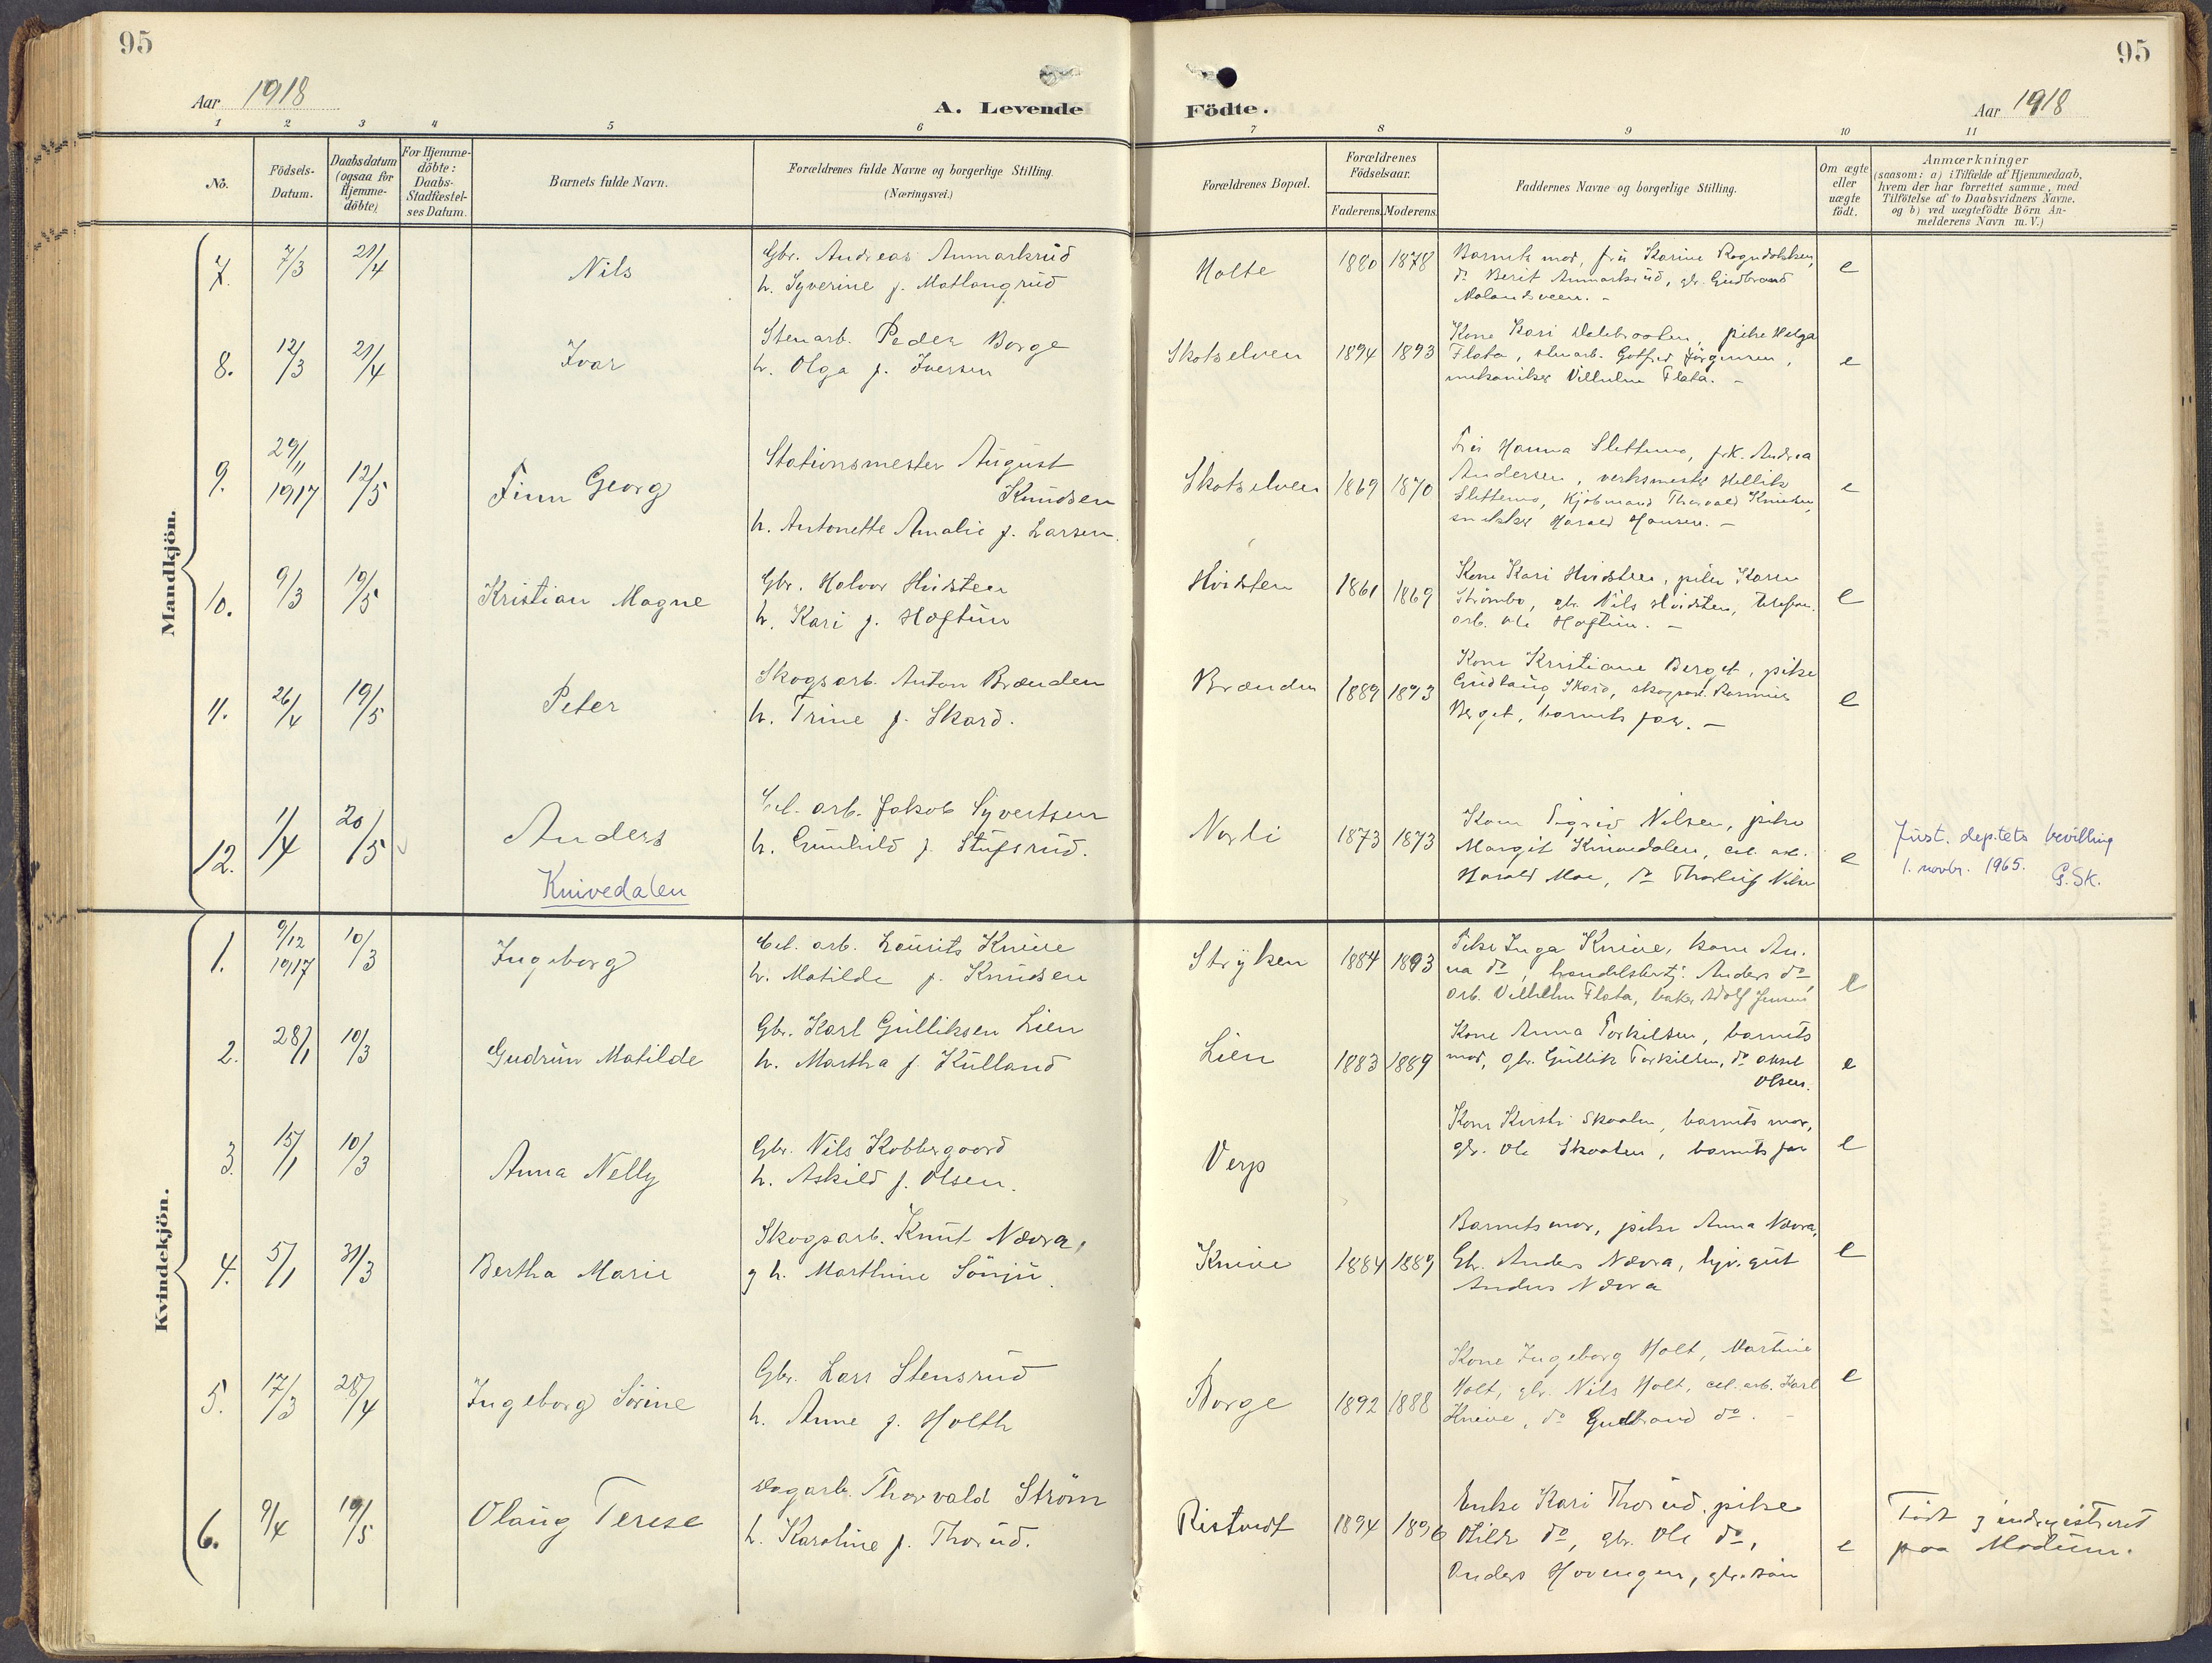 95
95
Aar 1918
A. Levende
Födte.
Aar 1918
1 2 3 4 5 6 7 8 9 10 11
No.
Födsels-
Datum.
Daabsdatum
(ogsaa for
Hjemme-
döbte)
For Hjemme-
döbte:
Daabs-
Stadfæstel-
ses Datum.
Barnets fulde Navn.
Forældrenes fulde Navne og borgerlige Stilling.
(Næringsvei.)
Forældrenes Bopæl.
Forældrenes
Födselsaar.
Faderens. Moderens.
Faddernes Navne og borgerlige Stilling.
Om ægte
eller
uægte
födt.
Anmærkninger
(saasom: a) i Tilfælde af Hjemmedaab,
hvem der har forrettet samme, med
Tilföielse af to Daabsvidners Navne.
og b) ved uægtefödte Börn An-
melderens Navn m. V.)
Mandkjön.
7. 7/3 21/4 Nils
Gbr. Andreas Anmarkrud
h. Syverine f. Matlangrud
Holte 1880 1878
Barnets mor, fru Karine
do Berit Anmarkrud, gbr. Gudbrand
e
8. 12/3 21/4 Ivar
Stenarb. Peder Borge
h. Olga f. Iversen
Skotselven 1894 1893
Kone Kari pike Helga
Flata, stenarb. Gotfred Jörgensen,
mekaniker Vilhelm Flata. -
e
9. 29/11 1917 12/5 Finn Georg
Stationsmester August
Knudsen
h. Antonette Amalie f. Larsen.
Skotselven 1869 1870
Fru Hanna Slettemo, frk. Andrea
Andersen, verksmester Hellik
Slettemo, Kjöbmand Thorvald Knutsen,
snekker Harald Hansen. -
e
10. 9/3 19/5 Kristian Magne
Gbr. Halvor Hvidsten
h. Kari f. Hoftun
Hvidsten 1861 1869
Kone Kari Hvidsten, pike Karen
Strömbo, gbr. Nils Hvidsten, telefon-
arb. Ole Hoftun. -
e
11. 26/4 19/5 Peter
Skogsarb. Anton Brænden
h. Trine f. Skard.
Brænden 1889 1893
Kone Kristiane Berget, pike
Gudlaug Skard, skogsarb. Rasmus
Berget, barnets far. -
e
12. 1/4 20/5 Anders
Knivedalen
Cel. arb. Jakob Syvertsen
h. Gunhild f. Stufsrud.
Norli 1873 1873
Kone Sigrid Nilsen, pike
Margit Knivedalen, cel. arb.
Harald Moe, do Thorleif Nilsen
e
Just. dep.tets bevilling
1. novbr. 1965. G.Sk.
Kvindekjön.
1. 9/12 1917 10/3 Ingeborg
Cel. arb. Laurits Knive
h. Matilde f. Knudsen
Stryken 1884 1893
Pike Inga Knive, kone An-
na do, handelsbetj. Anders do,
arb. Vilhelm Flata, baker Adolf Jensen
e
2. 28/1 10/3 Gudrun Matilde
Gbr. Karl Gulliksen Lien
h. Martha f. Kulland
Lien 1883 1889
Kone Anna Torkilsen, barnets
mor, gbr. Gullik Torkilsen, do Aksel
Olsen.
e
3. 15/1 10/3 Anna Nelly
Gbr. Nils Kobbergaard
h. Askild f. Olsen.
Verp
Kone Kirsti Skaalen, barnets mor,
gbr. Ole Skaalen, barnets far
e
4. 5/1 31/3 Bertha Marie
Skogsarb. Knut Nævra,
g h. Marthine Sönju.
Knive 1884 1889
Barnets mor, pike Anna Nævra,
Gbr. Anders Nævra, gut
Anders Nævra
e
5. 17/3 28/4 Ingeborg Sörine
Gbr. Lars Stensrud
h. Anne f. Holth
Borge 1892 1888
Kone Ingeborg Holt, Martine
Holt, gbr. Nils Holt, cel. arb. Karl
Knive, do Gudbrand do. -
e
6. 9/4 19/5 Olaug Terese
Dagarb. Thorvald Ström
h. Karoline f. Thorud.
Ristvedt 1894 1896
Enke Kari Thorud, pike
Hilda do, gbr. Ole do,
Anders Hovengen, gbr.sön
e
Födt g indregistreret
paa Modum.